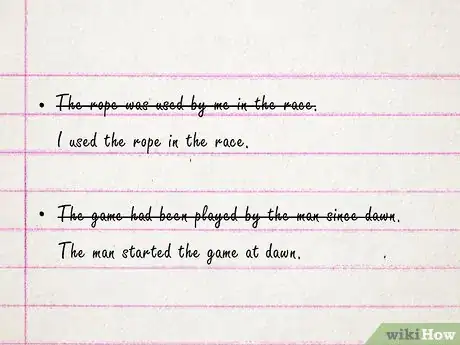 • The rope was used by me in the race.
I used the rope in the race.
• The game had been played by the man since dawn.
The man started the game at dawn.
wikiHow